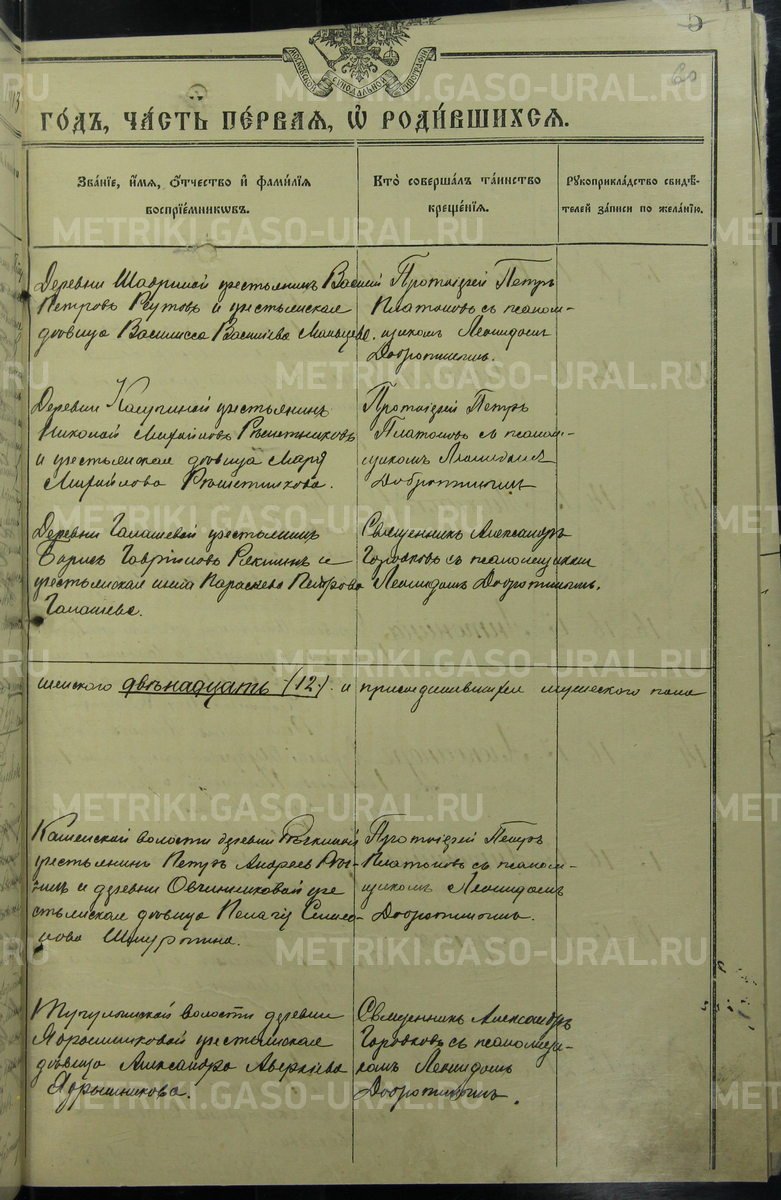 5
60
МОСКОВСКОЙ СѴНОДАЛЬНОЙ ТИПОГРАФІИ
го́дъ, ча́сть пе́рвая, ѡ҆ роди́вшихся.
Зва́нїе, и҆́мя, ѻ҆́тчество и҆ фами́лїя воспрїе́мникѡвъ.
Кто̀ соверша́лъ та́инство креще́нїѧ.
Рꙋкоприкла́дство свидѣ́телей за́писи по жела́нїю.
Деревни Шавриной крестьянинъ Василій
Петровъ Реутовъ и крестьянская
дѣвица Василисса Васильева Мальцева.
Протоіерей Петръ
Платоновъ съ псалом-
щикомъ Леонидомъ
Добротинымъ.
Деревни Калугиной крестьянинъ
Николай Михайловъ Рѣшетниковъ
и крестьянская дѣвица Марія
Михайлова Рѣшетникова.
Протоіерей Петръ
Платоновъ съ псалом-
щикомъ Леонидомъ
Добротинымъ
Деревни Галашевой крестьянинъ
Борисъ Гавріиловъ Рякшинъ и
крестьянская жена Параскева Петрова
Галашева.
Священникъ Александръ
Горбовъ съ псаломщикомъ
Леонидомъ Добротинымъ.
женскаго двѣнадцать (12) и присоединившихся мужескаго пола
волости деревни
крестьянинъ Петръ Андреевъ
и деревни Овчинниковой кре
стьянская дѣвица Пелагія Симео-
нова
Протоіерей Петръ
Платоновъ съ псалом-
щикомъ Леонидомъ
Добротинымъ.
Тугулымской волости деревни
Ядрышниковой крестьянская
дѣвица Александра Аверкіева
Ядрышникова.
Священникъ Александръ
Горбовъ съ псаломщи-
комъ Леонидомъ
Добротинымъ.
METRIKI.GASO-URAL.RU